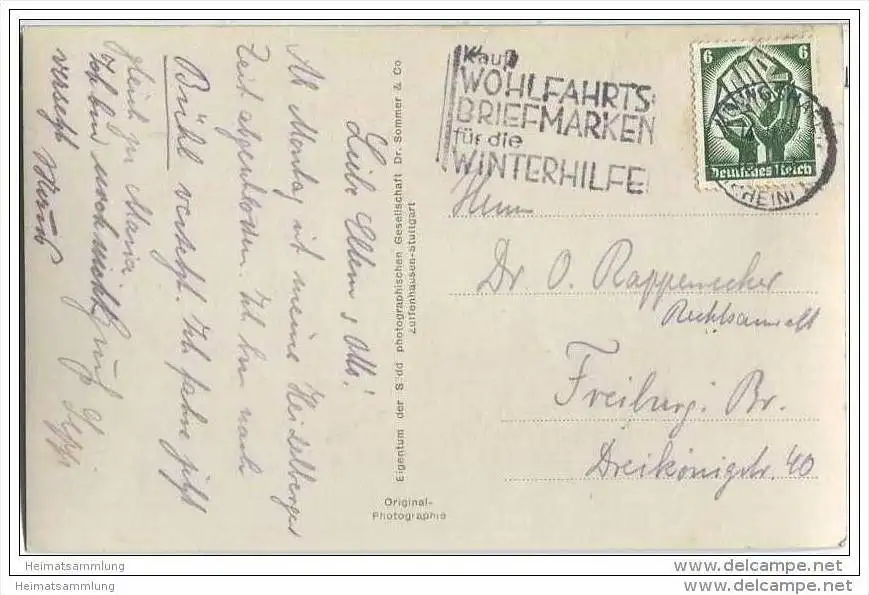 Kauft
WOHLFAHRTS-
BRIEFMARKEN
für die
WINTERHILFE
6 6
Deutsches Reich
(RHEIN)
Herrn
Dr. O. Rappenecker
Rechtsanwalt
Freiburg i. Br.
Dreikönigstr. 40
Eigentum der Südd photographischen Gesellschaft Dr. Sommer & Co
Zuffenhausen-Stuttgart
Original-
Photographie
Liebe Eltern, Otto!
Ab Montag ist meine Heidelberger
Zeit abgeschlossen. Ich bin nach
Brühl versetzt. Ich fahre jetzt
gleich zu Maria.
Gruß Sepp
Ich bin noch nicht
versetzt
Heimatsammlung
Heimatsammlung
www.delcampe.net
www.delcampe.net